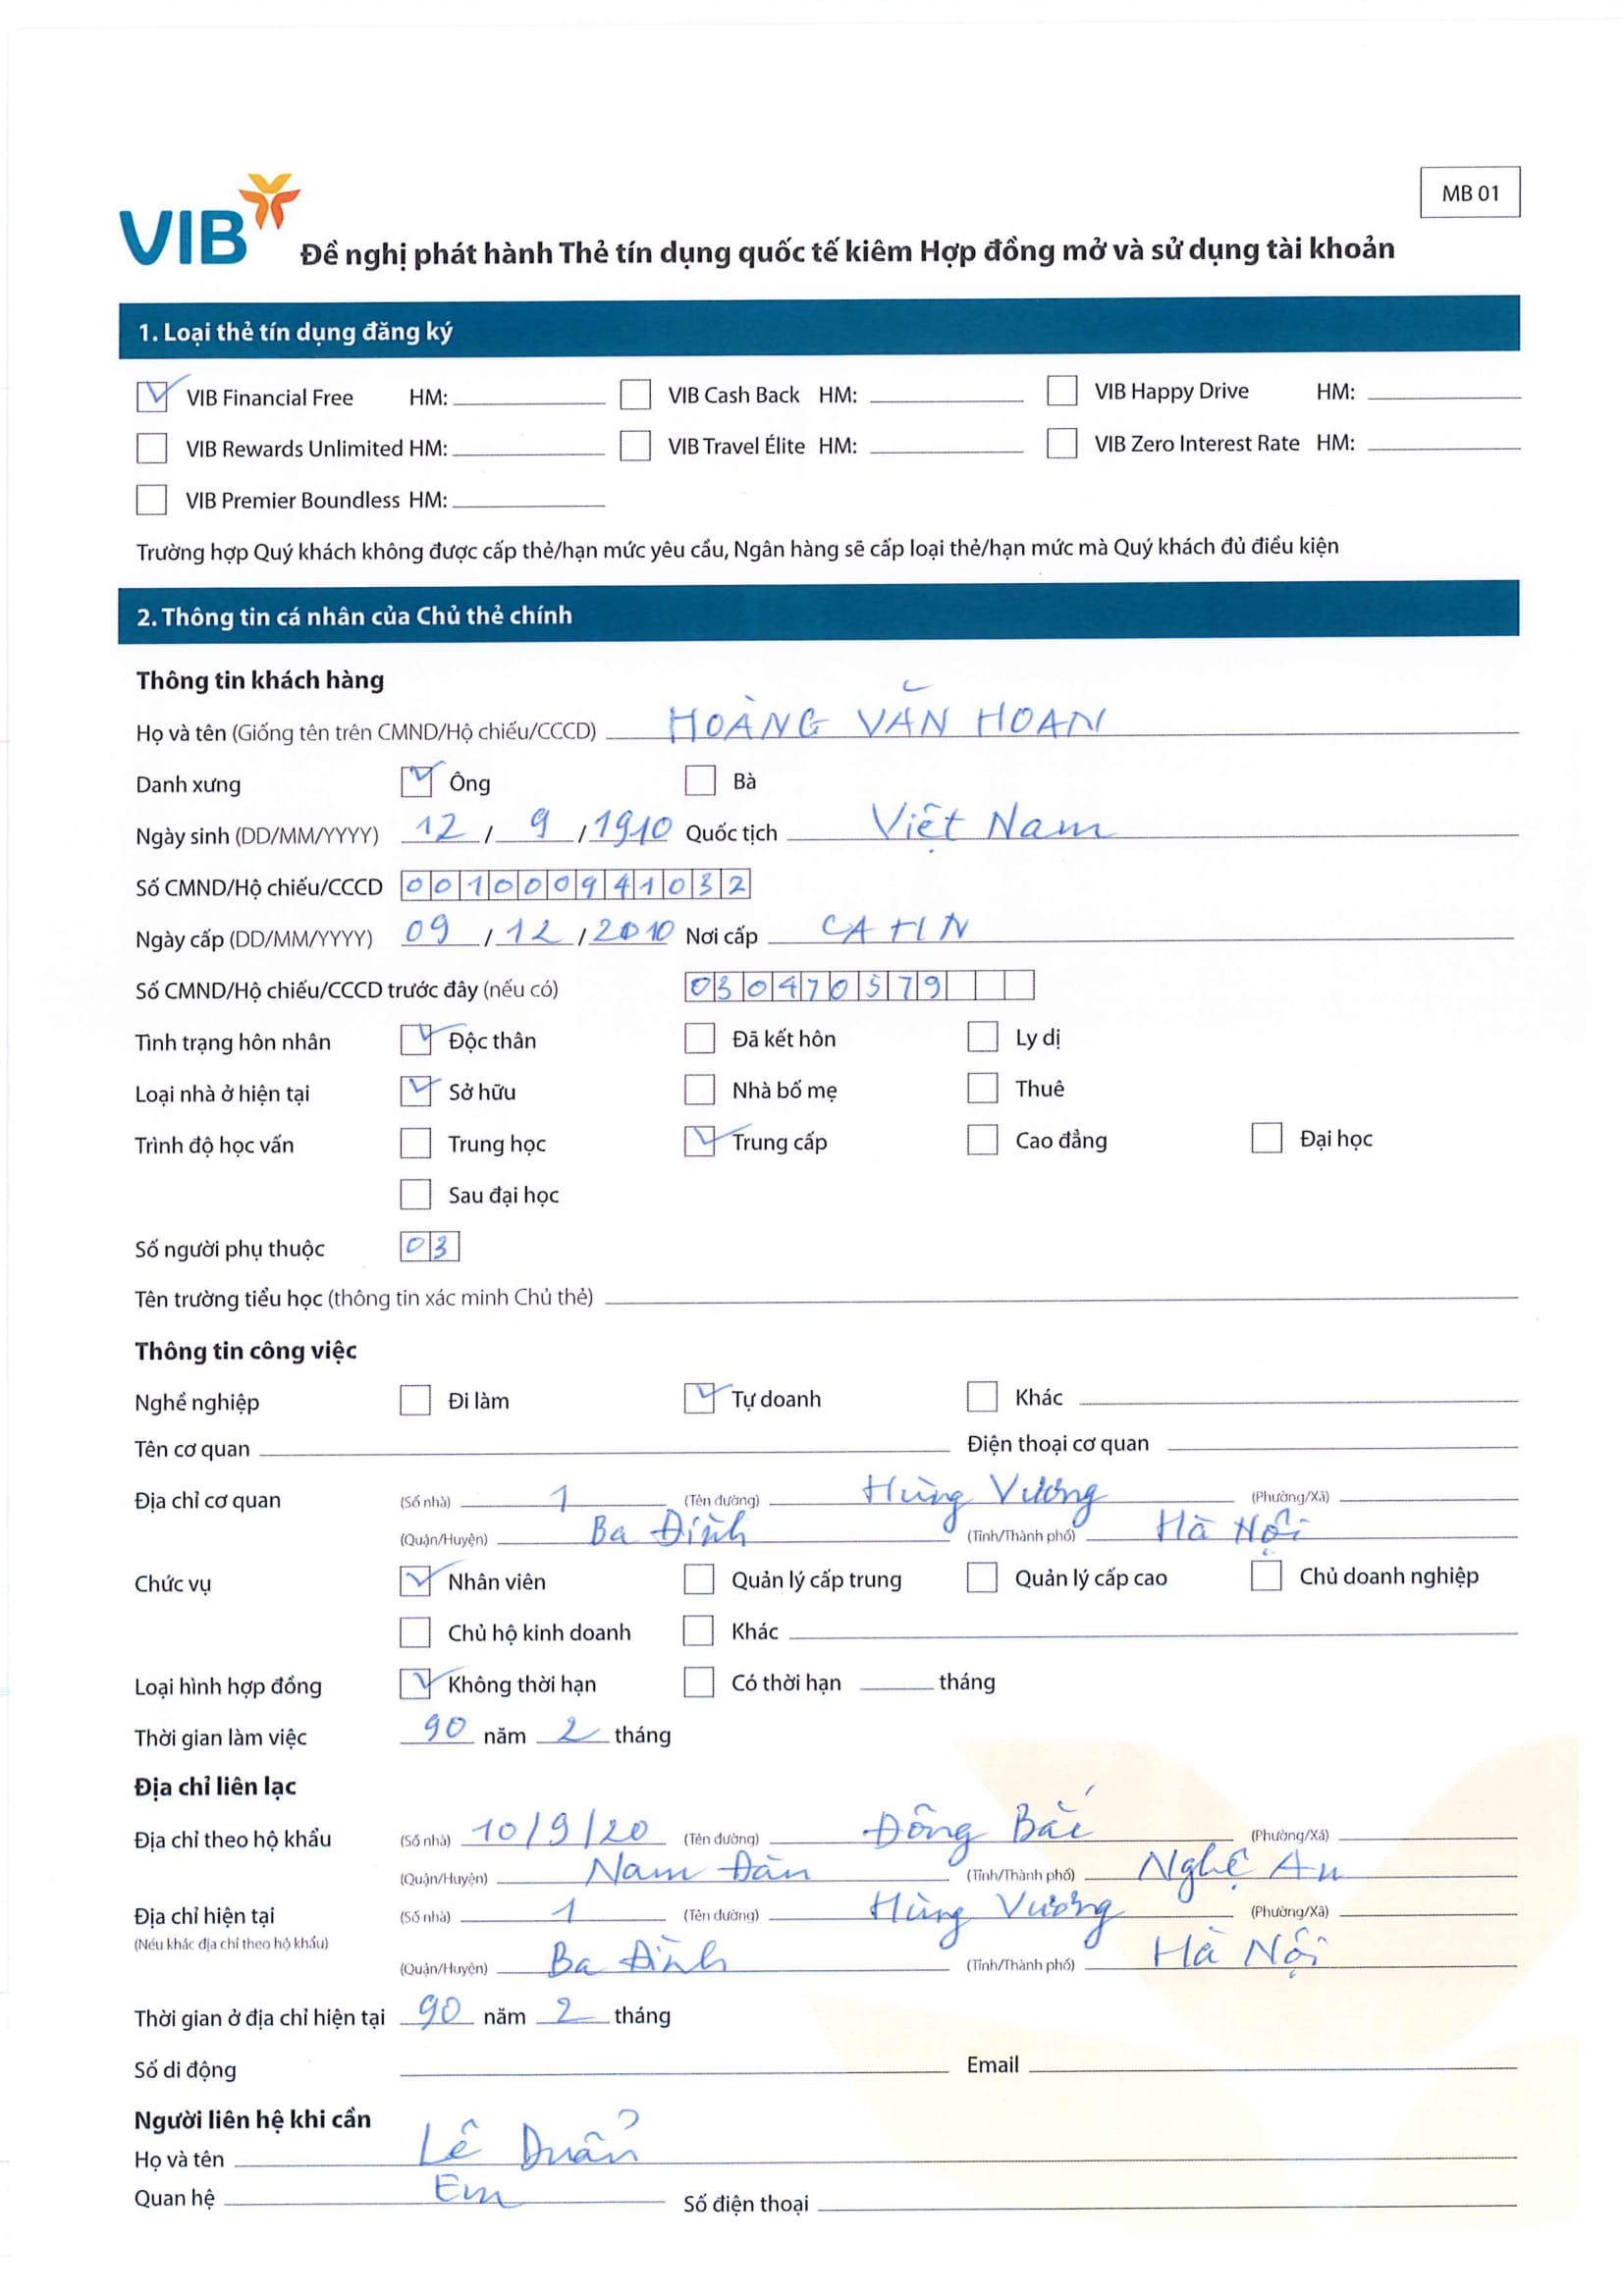 MB 01
VIB
Đề nghị phát hành Thẻ tín dụng quốc tế kiêm Hợp đồng mở và sử dụng tài khoản
1. Loại thẻ tín dụng đăng ký
VIB Financial Free HM: VIB Cash Back HM: VIB Happy Drive HM:
VIB Rewards Unlimited HM: VIB Travel Élite HM: VIB Zero Interest Rate HM:
VIB Premier Boundless HM:
Trường hợp Quý khách không được cấp thẻ/hạn mức yêu cầu, Ngân hàng sẽ cấp loại thẻ/hạn mức mà Quý khách đủ điều kiện
2. Thông tin cá nhân của Chủ thẻ chính
Thông tin khách hàng
Họ và tên (Giống tên trên CMND/Hộ chiếu/CCCD) HOÀNG VĂN HOAN
Danh xưng Ông Bà
Ngày sinh (DD/MM/YYYY) 12 / 9 / 1910 Quốc tịch Việt Nam
Số CMND/Hộ chiếu/CCCD 001000941032
Ngày cấp (DD/MM/YYYY) 09 / 12 / 2010 Nơi cấp CA HN
Số CMND/Hộ chiếu/CCCD trước đây (nếu có) 030470579
Tình trạng hôn nhân Độc thân Đã kết hôn Ly dị
Loại nhà ở hiện tại Sở hữu Nhà bố mẹ Thuê
Trình độ học vấn Trung học Trung cấp Cao đẳng Đại học
Sau đại học
Số người phụ thuộc 03
Tên trường tiểu học (thông tin xác minh Chủ thẻ)
Thông tin công việc
Nghề nghiệp Đi làm Tự doanh Khác
Tên cơ quan Điện thoại cơ quan
Địa chỉ cơ quan (Số nhà) 1 (Tên đường) Hùng Vương (Phường/Xã)
(Quận/Huyện) Ba Đình (Tỉnh/Thành phố) Hà Nội
Chức vụ Nhân viên Quản lý cấp trung Quản lý cấp cao Chủ doanh nghiệp
Chủ hộ kinh doanh Khác
Loại hình hợp đồng Không thời hạn Có thời hạn tháng
Thời gian làm việc 90 năm 2 tháng
Địa chỉ liên lạc
Địa chỉ theo hộ khẩu (Số nhà) 10/9/20 (Tên đường) Đông Bắc (Phường/Xã)
(Quận/Huyện) Nam Đàn (Tỉnh/Thành phố) Nghệ An
Địa chỉ hiện tại (Số nhà) 1 (Tên đường) Hùng Vương (Phường/Xã)
(Nếu khác địa chỉ theo hộ khẩu)
(Quận/Huyện) Ba Đình (Tỉnh/Thành phố) Hà Nội
Thời gian ở địa chỉ hiện tại 90 năm 2 tháng
Số di động Email
Người liên hệ khi cần
Họ và tên Lê Duẩn
Quan hệ Em Số điện thoại